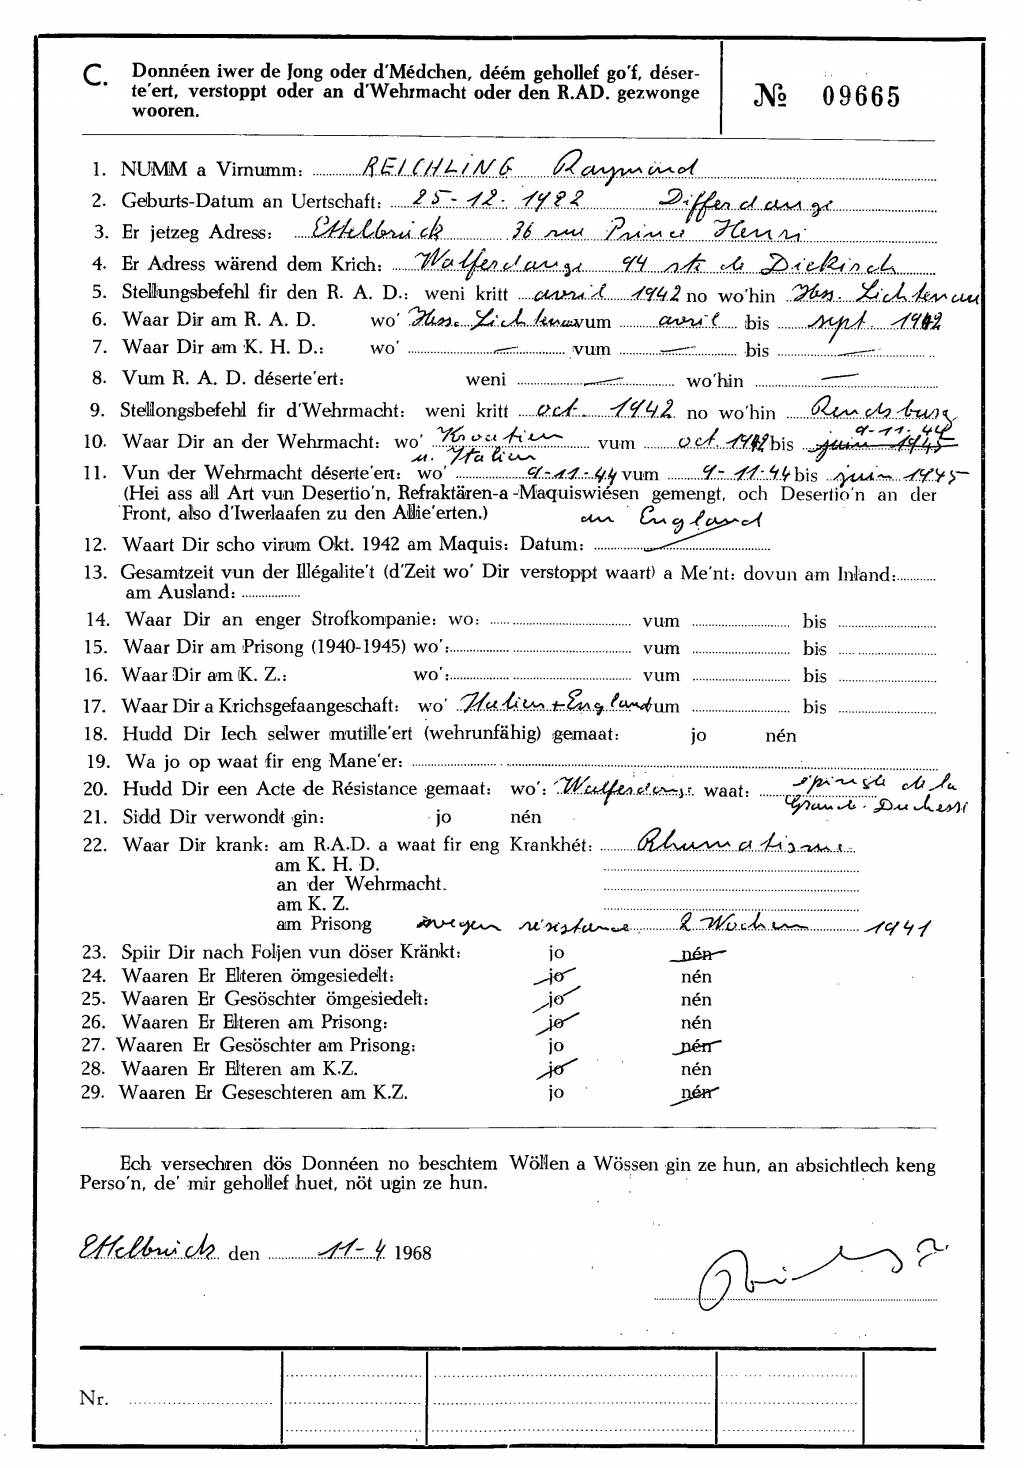 C. Donnéen iwer de Jong oder d'Médchen, déém gehollef go'f, déser-
te'ert, verstoppt oder an d'Wehrmacht oder den R.AD. gezwonge
wooren.
№ 09665
1. NUMM a Virnumm: REICHLING Raymond
2. Geburts-Datum an Uertschaft: 25-12-1922 Differdange
3. Er jetzeg Adress: Ettelbrück 36 rue Prince Henri
4. Er Adress wärend dem Krich: Walferdange 94 rte de Diekirch
5. Stellungsbefehl fir den R. A. D.: weni kritt avril 1942 no wo'hin Hess. Lichtenau
6. Waar Dir am R. A. D. wo' Hess. Lichtenau vum avril bis sept. 1942
7. Waar Dir am K. H. D.: wo' — vum — bis —
8. Vum R. A. D. déserte'ert: weni — wo'hin —
9. Stellongsbefehl fir d'Wehrmacht: weni kritt oct. 1942 no wo'hin Rendsburg
9-11-44
10. Waar Dir an der Wehrmacht: wo' Kroatien vum oct. 1942 bis juin 1945
u. Italien
11. Vun der Wehrmacht déserte'ert: wo' 9-11-44 vum 9-11-44 bis juin 1945
(Hei ass all Art vun Desertio'n, Refraktären-a-Maquiswiésen gemengt, och Desertio'n an der
Front, also d'Iwerlaafen zu den Allie'erten.) an England
12. Waart Dir scho virum Okt. 1942 am Maquis: Datum: —
13. Gesamtzeit vun der Illégalite't (d'Zeit wo' Dir verstoppt waart) a Me'nt: dovun am Inland:
am Ausland:
14. Waar Dir an enger Strofkompanie: wo: vum bis
15. Waar Dir am Prisong (1940-1945) wo': vum bis
16. Waar Dir am K. Z.: wo': vum bis
17. Waar Dir a Krichsgefaangeschaft: wo' Italien + England vum bis
18. Hudd Dir Iech selwer mutille'ert (wehrunfähig) gemaat: jo nén
19. Wa jo op waat fir eng Mane'er:
20. Hudd Dir een Acte de Résistance gemaat: wo': Walferdange waat: épingle de la
Grande-Duchesse
21. Sidd Dir verwondt gin: jo nén
22. Waar Dir krank: am R.A.D. a waat fir eng Krankhét: Rhumatisme
am K. H. D.
an der Wehrmacht.
am K. Z.
am Prisong wegen résistance 2 Wochen 1941
23. Spiir Dir nach Foljen vun döser Kränkt: jo nén
24. Waaren Er Elteren ömgesiedelt: jo nén
25. Waaren Er Gesöschter ömgesiedelt: jo nén
26. Waaren Er Elteren am Prisong: jo nén
27. Waaren Er Gesöschter am Prisong: jo nén
28. Waaren Er Elteren am K.Z. jo nén
29. Waaren Er Geseschteren am K.Z. jo nén
Ech versechren dös Donnéen no beschtem Wöllen a Wössen gin ze hun, an absichtlech keng
Perso'n, de' mir gehollef huet, nöt ugin ze hun.
Ettelbrück den 11-4 1968
Nr.